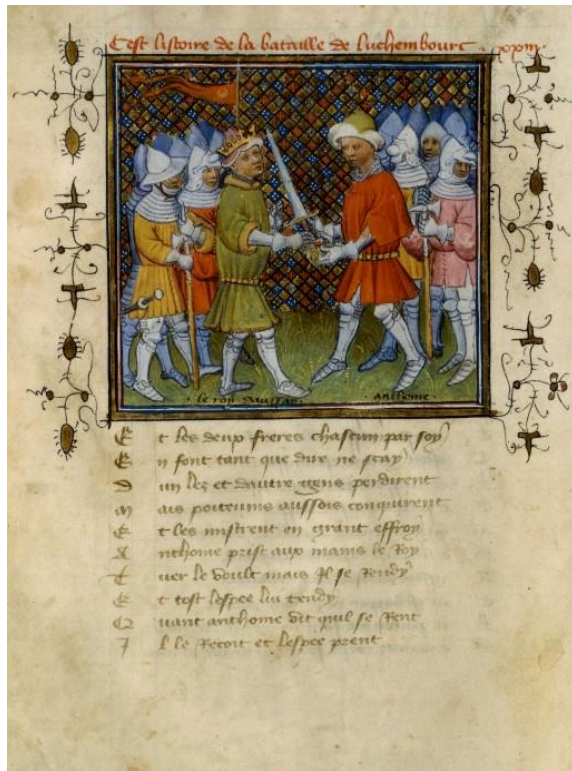 C'est listoire de la bataille de luchembourc xxiii
le roy aussay anthome
E t les deux freres chascun par soy
E n font tant que dire ne scay
D un lez et dautre gens perdirent
M ais poiteuins aussois conquirent
E t les mistrent en grant effroy
A nthome prist aux mains le Roy
T uer le voult mais Il se Rendy
E t tost lespee lui tendy
Q uant anthome vit quil se Rent
I l le Recoit et lespee prent